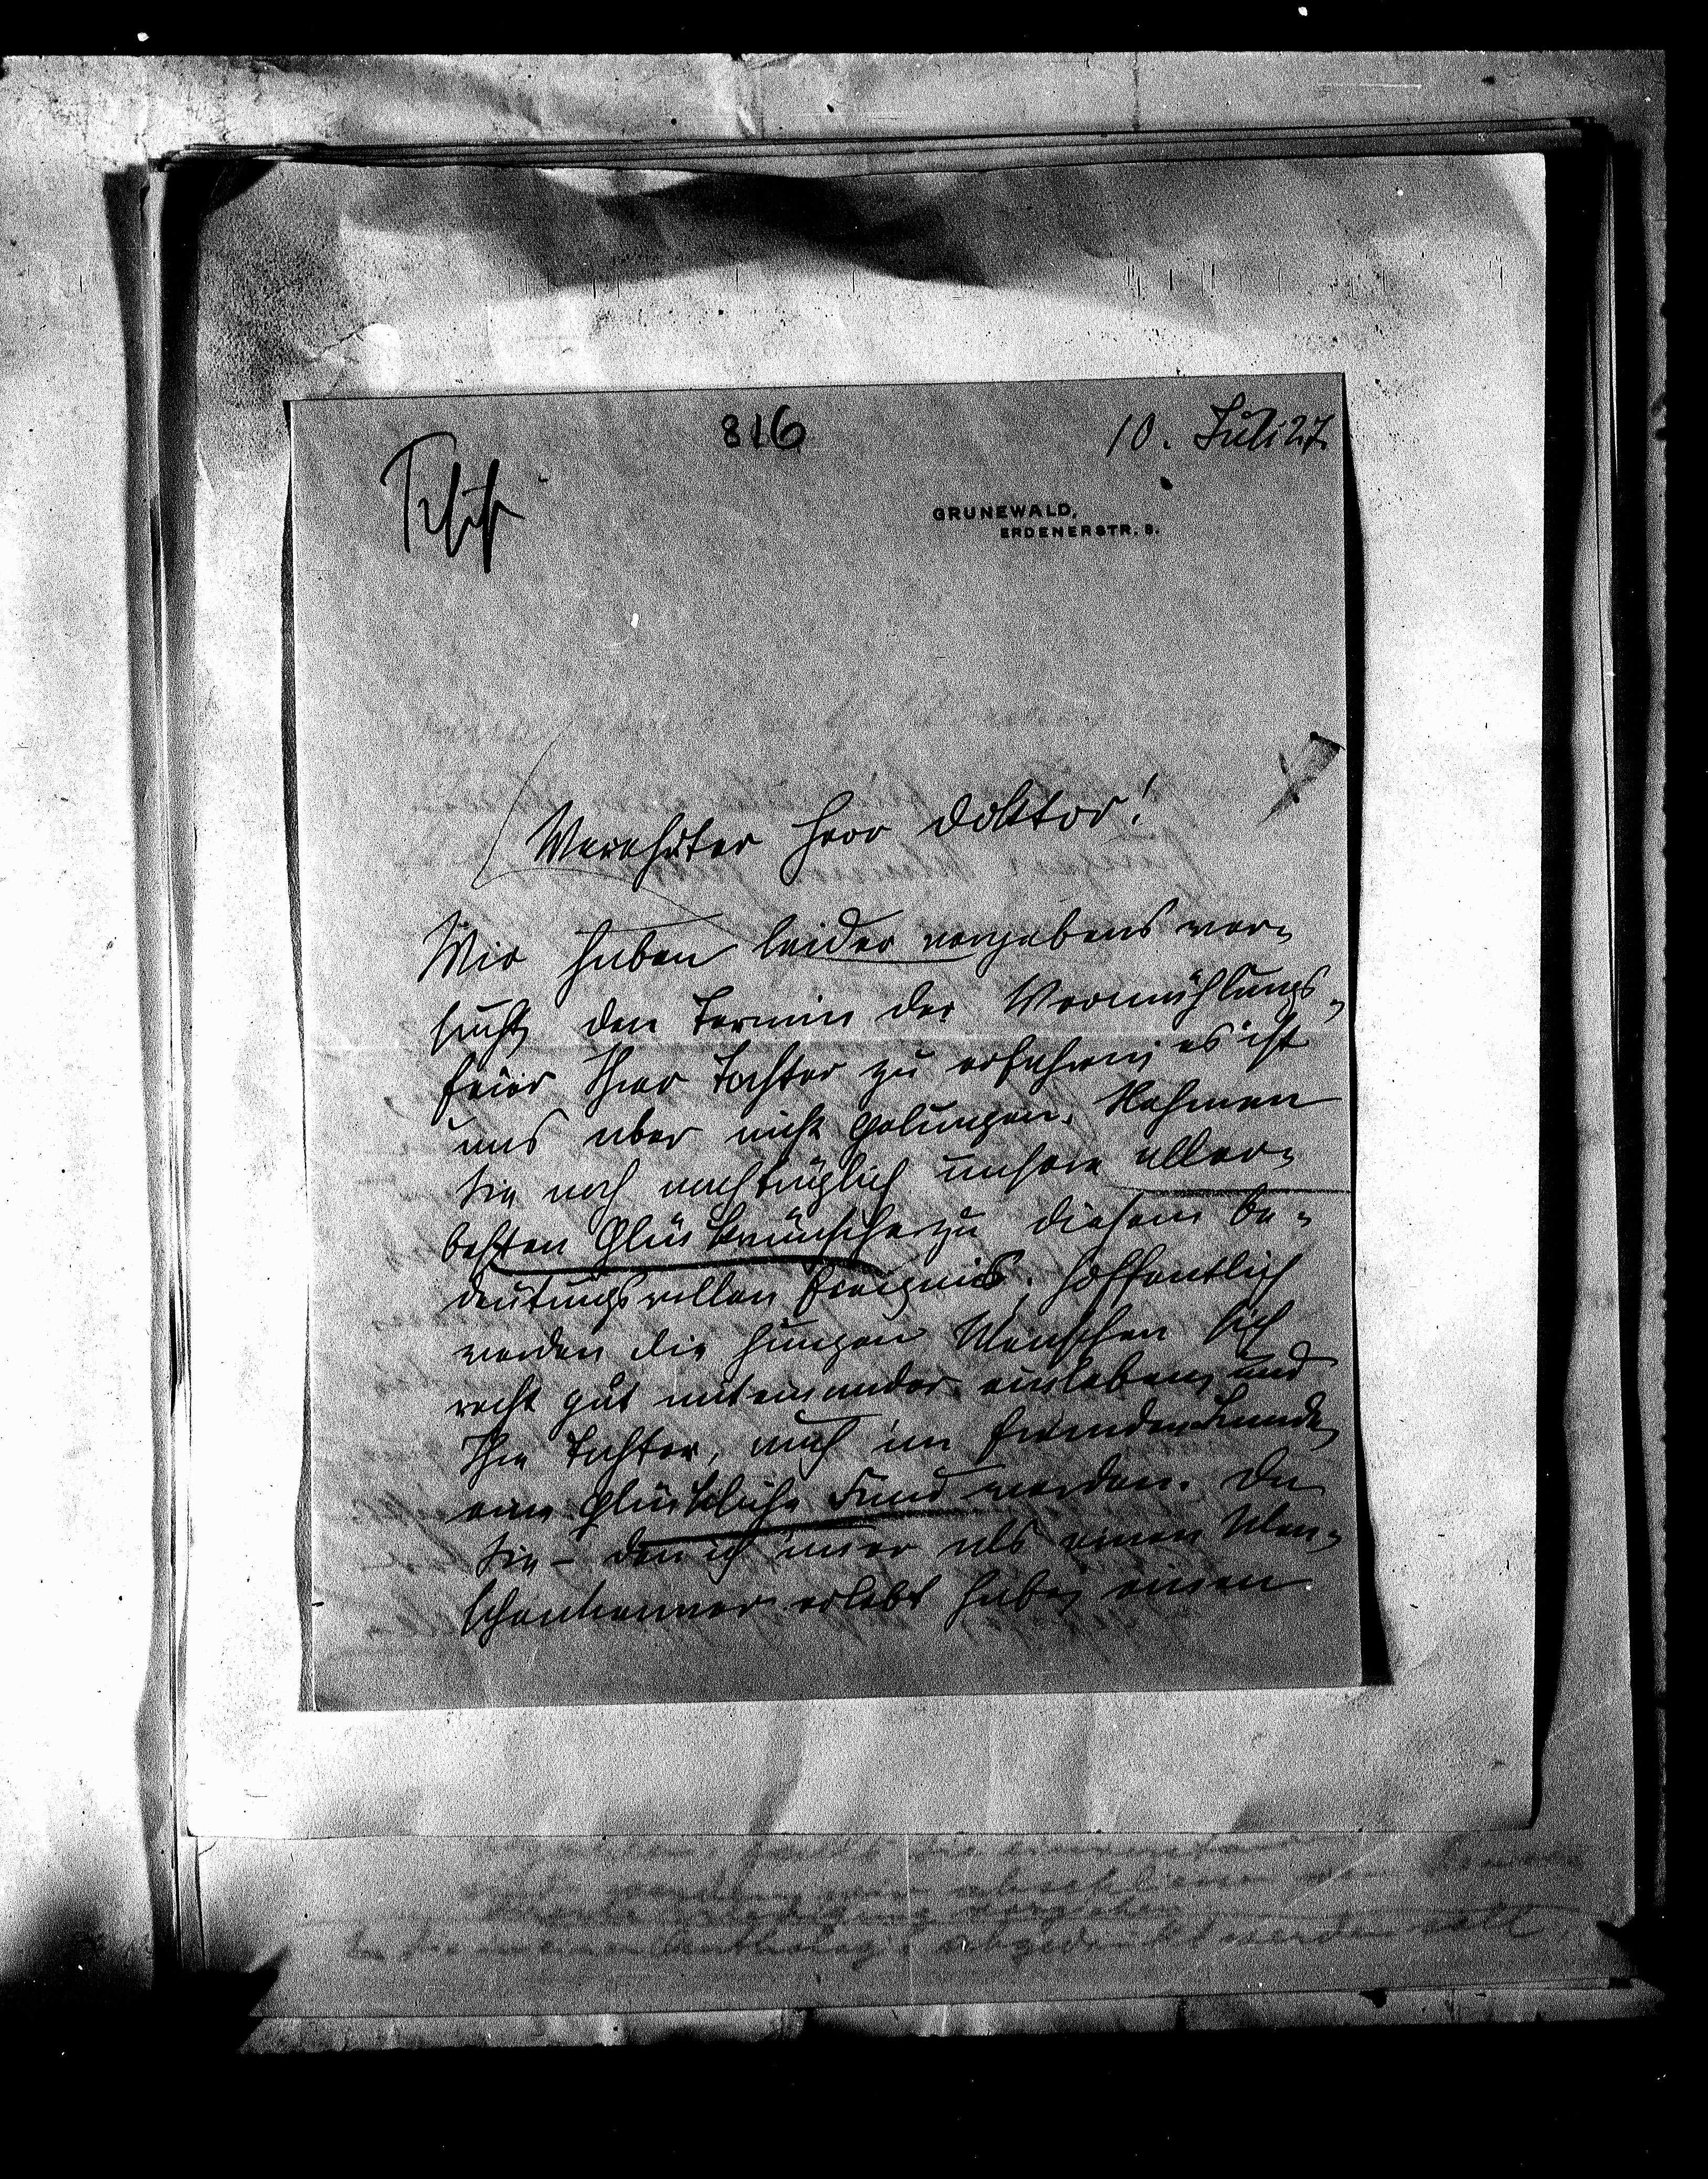 816
10. Juli 27.
GRUNEWALD,
ERDENERSTR. 8.
Verehrter Herr Doktor!
Wir haben leider vergebens ver-
sucht, den Termin der Vermählungs-
feier Ihrer Tochter zu erfahren; es ist
uns aber nicht gelungen. Nehmen
Sie noch nachträglich unsere aller-
besten Glückwünsche zu diesem be-
deutungsvollen Ereignis. Hoffentlich
werden die jungen Menschen sich
recht gut miteinander einleben, und
Ihre Tochter, auch im fremden Lande,
eine glückliche Frau werden. Da
Sie – den ich immer als einen Men-
schenkenner erlebt habe, einen
abgedruckt werden soll,